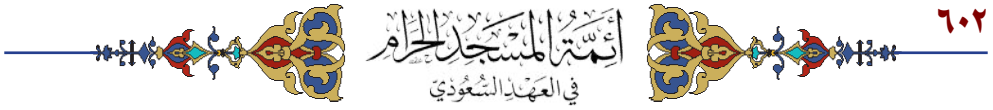 ٦٠٢
أَئِمَّةُ المَسْجِدِ الحَرَامِ
في العَهْدِ السُّعُودِيّ